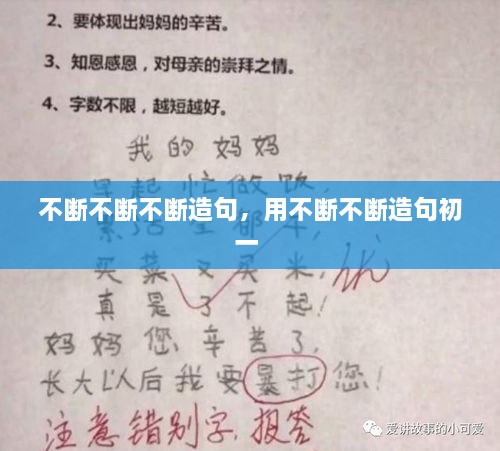 2、要体现出妈妈的辛苦。
3、知恩感恩，对母亲的崇拜之情。
4、字数不限，越短越好。
我的妈妈
早起忙做饭，
不断不断不断造句，用不断不断造句初
一
买菜又买米，优
真是了不起！
妈妈您辛苦了，
长大以后我要暴打您！
注意错别字，报答
爱讲故事的小可爱